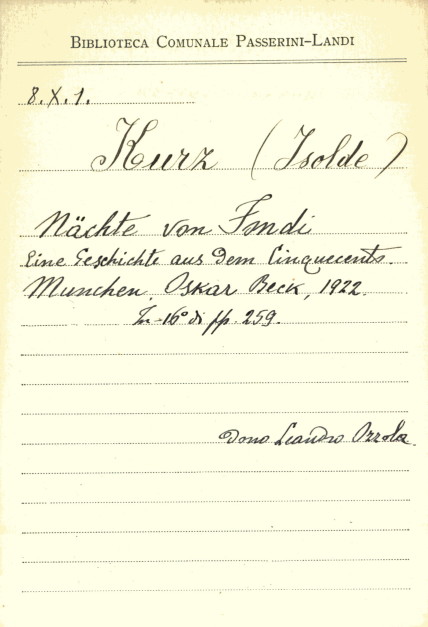 BIBLIOTECA COMUNALE PASSERINI-LANDI
8. X. 1.
Kurz (Isolde)
Nächte von Fondi
Eine Geschichte aus dem Cinquecento.
Munchen, Oskar Beck, 1922.
In-16° di pp. 259.
Dono Leandro Ozzola.